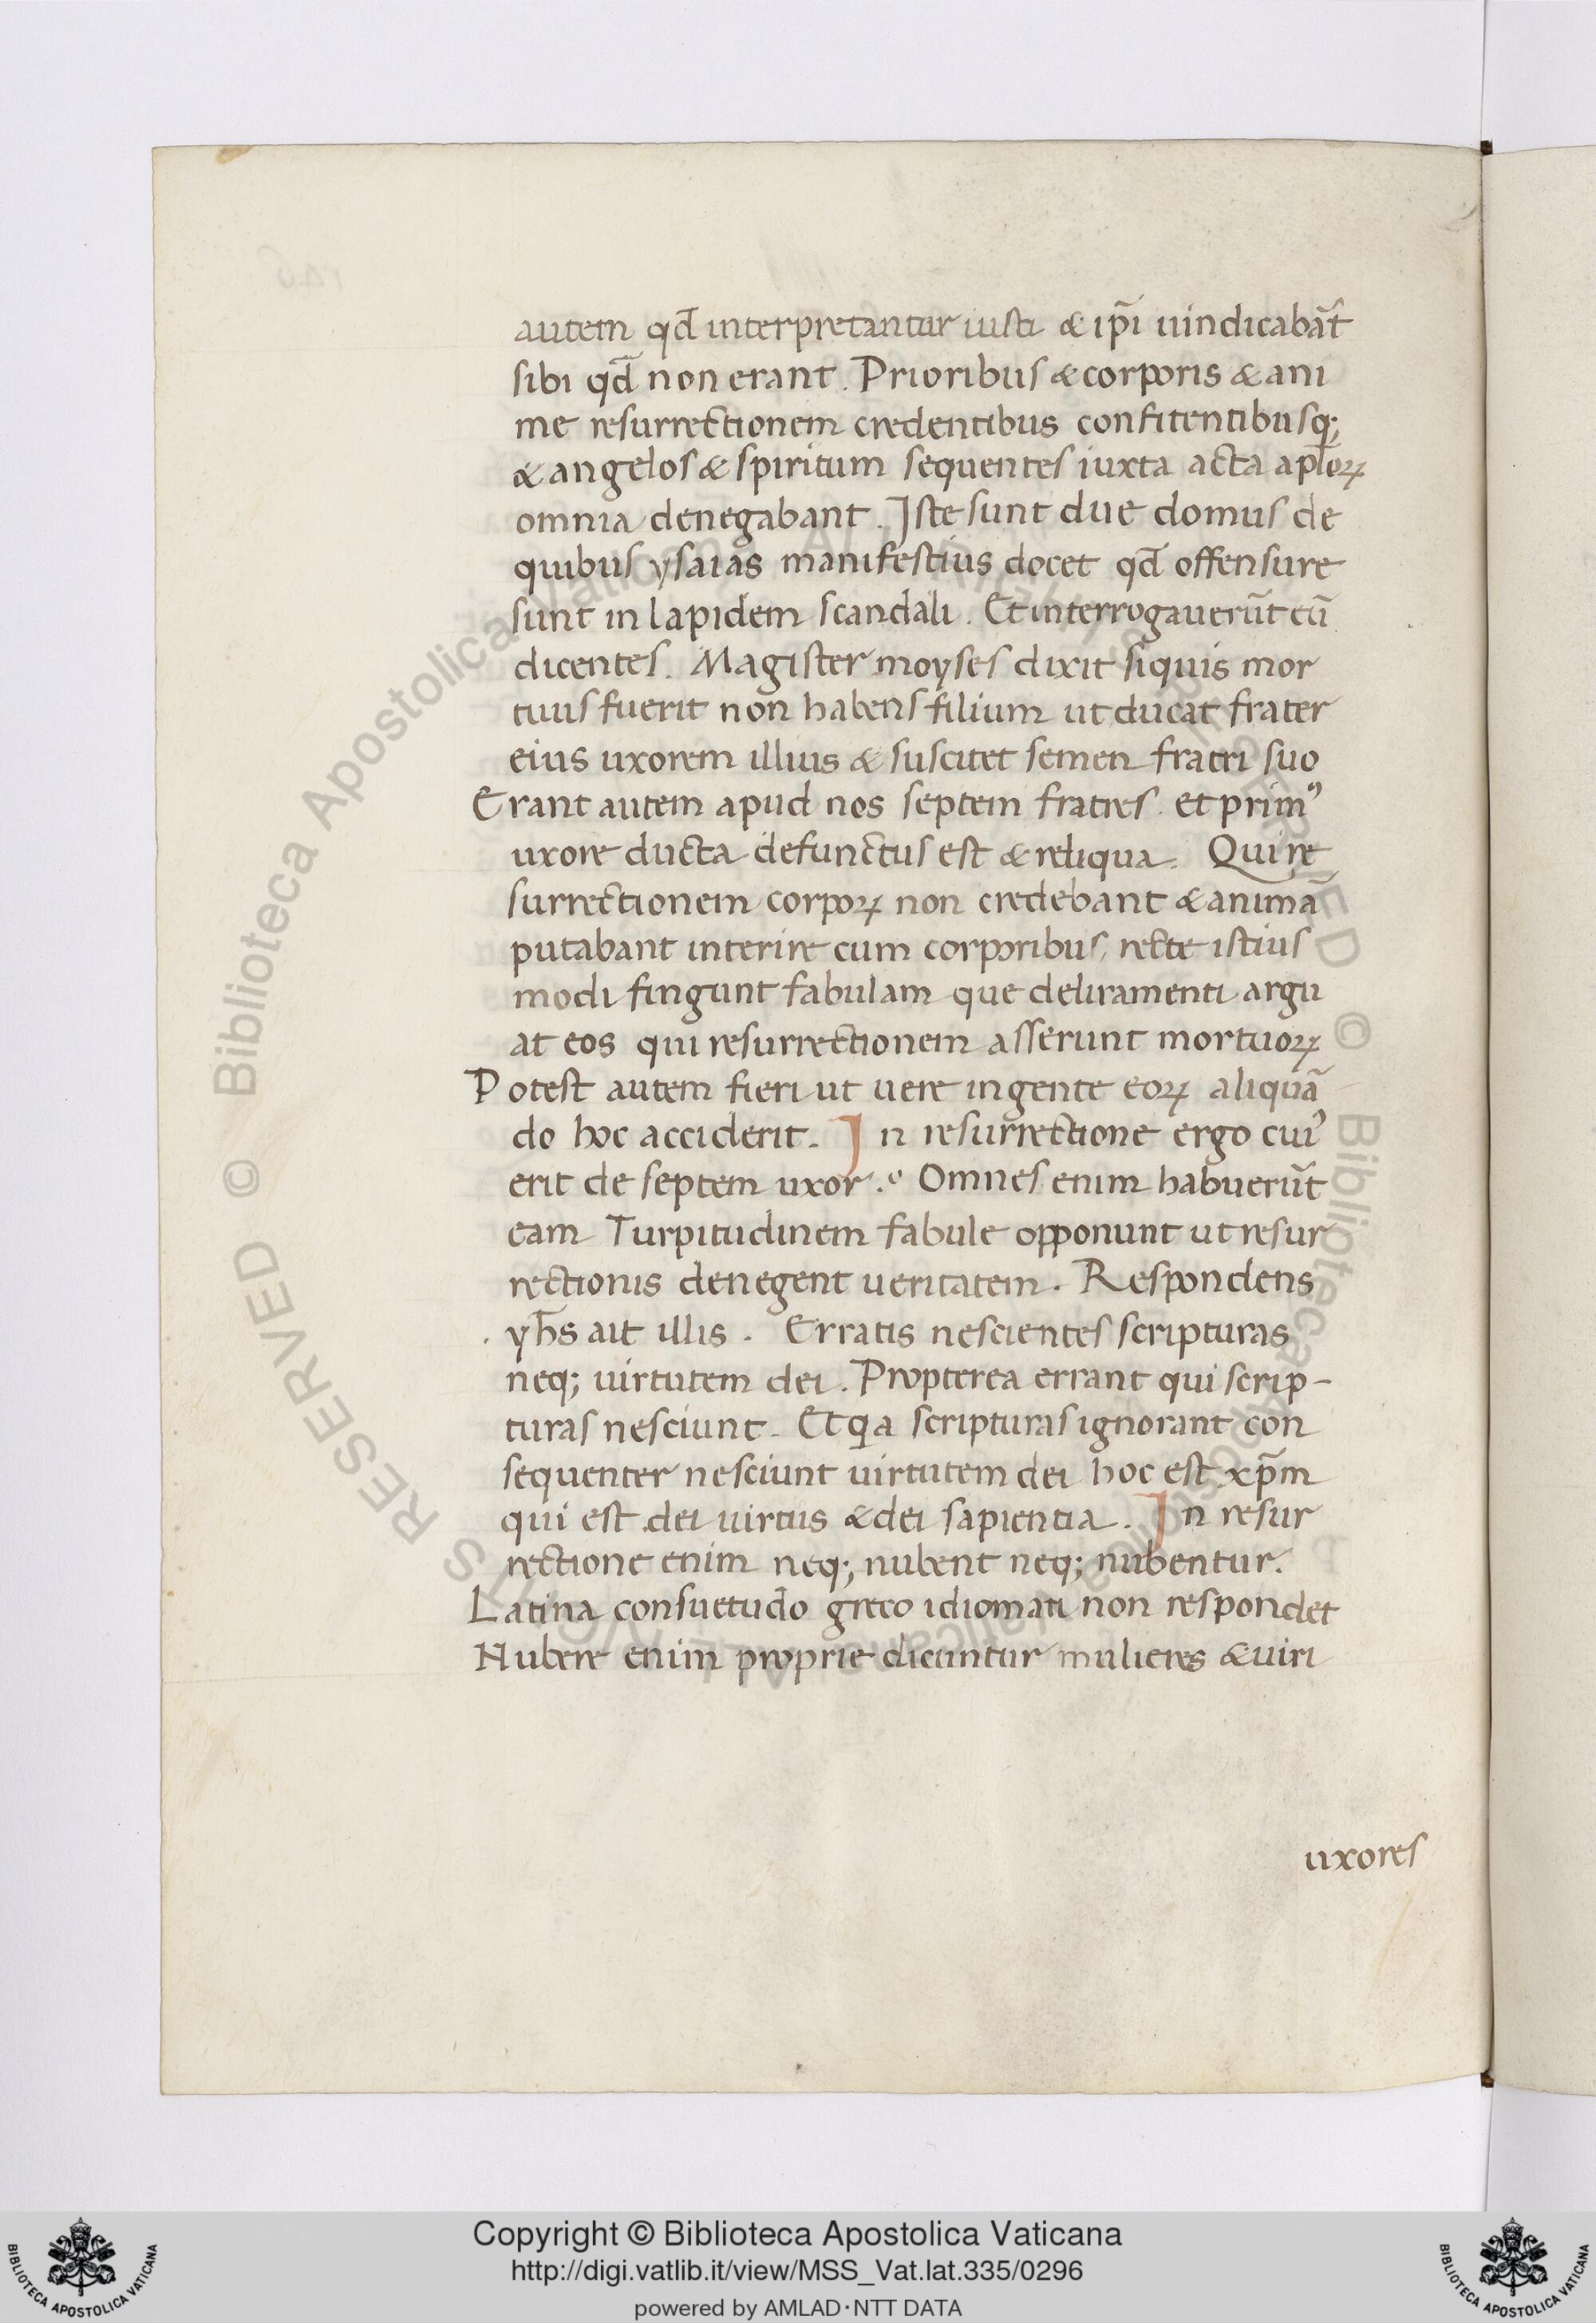 autem qd̄ interpretantur iusti & ip̄i uindicabāt
sibi qd̄ non erant. Prioribus & corporis & ani
me resurrectionem credentibus confitentibusq;
& angelos & spiritum sequentes iuxta acta apl̄oꝝ
omnia denegabant. Iste sunt due domus de
quibus ysaias manifestius docet qd̄ offensure
sunt in lapidem scandali. Et interrogauerūt eū
dicentes. Magister moyses dixit siquis mor
tuus fuerit non habens filium ut ducat frater
eius uxorem illius & suscitet semen fratri suo
Erant autem apud nos septem fratres. et primꝰ
uxore ducta defunctus est & reliqua. Qui re
surrectionem corpoꝝ non credebant & animā
putabant interire cum corporibus, recte istius
modi fingunt fabulam que deliramenti argu
at eos qui resurrectionem asserunt mortuoꝝ
Potest autem fieri ut uere in gente eoꝝ aliquā
do hoc acciderit. In resurrectione ergo cuiꝰ
erit de septem uxor.º Omnes enim habuerūt
eam Turpitudinem fabule opponunt ut resur
rectionis denegent ueritatem. Respondens
. yh̄s ait illis. Erratis nescientes scripturas
neq; uirtutem dei. Propterea errant qui scrip-
turas nesciunt. Et qia scripturas ignorant con
sequenter nesciunt uirtutem dei hoc est xp̄m
qui est dei uirtus & dei sapientia. In resur
rectione enim neq; nubent neq; nubentur.
Latina consuetudo greco idiomati non respondet
Nubere enim proprie dicuntur mulieres & uiri
uxores
RESERVED © Biblioteca Apostolica Vaticana
Copyright © Biblioteca Apostolica Vaticana
http://digi.vatlib.it/view/MSS_Vat.lat.335/0296
powered by AMLAD·NTT DATA
BIBLIOTECA APOSTOLICA VATICANA
BIBLIOTECA APOSTOLICA VATICANA